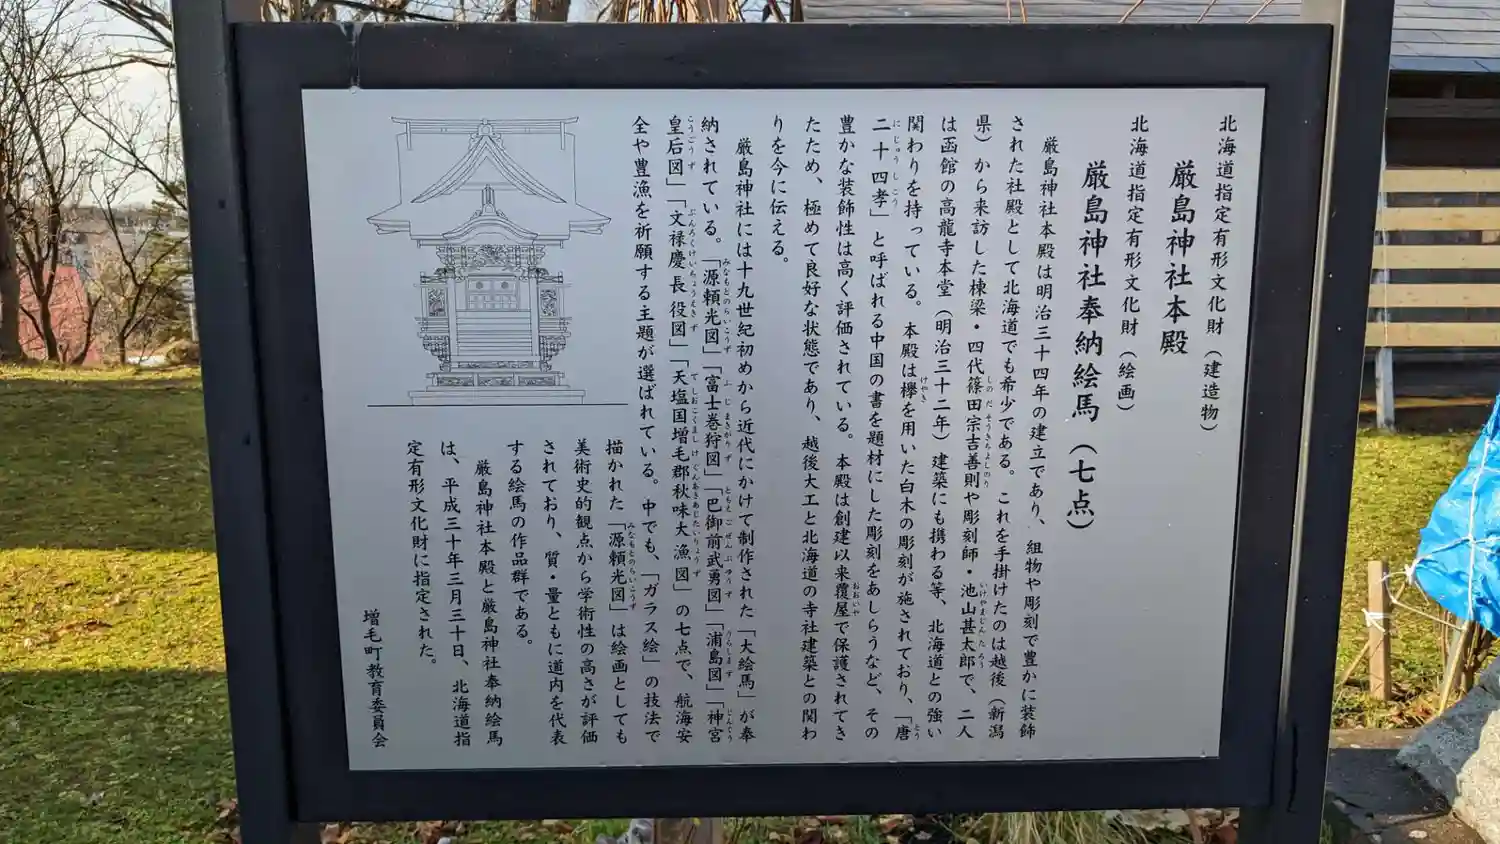 北海道指定有形文化財（建造物）
厳島神社本殿
北海道指定有形文化財（絵画）
厳島神社奉納絵馬（七点）
厳島神社本殿は明治三十四年の建立であり、組物や彫刻で豊かに装飾
された社殿として北海道でも希少である。これを手掛けたのは越後（新潟
県）から来訪した棟梁・四代篠田宗吉善則や彫刻師・池山甚太郎で、二人
は函館の高龍寺本堂（明治三十二年）建築にも携わる等、北海道との強い
関わりを持っている。本殿は欅を用いた白木の彫刻が施されており、「唐
二十四孝」と呼ばれる中国の書を題材にした彫刻をあしらうなど、その
豊かな装飾性は高く評価されている。本殿は創建以来覆屋で保護されてき
たため、極めて良好な状態であり、越後大工と北海道の寺社建築との関わ
りを今に伝える。
厳島神社には十九世紀初めから近代にかけて制作された「大絵馬」が奉
納されている。「源頼光図」「富士巻狩図」「巴御前武勇図」「浦島図」「神宮
皇后図」「文禄慶長役図」「天塩国増毛郡秋味大漁図」の七点で、航海安
全や豊漁を祈願する主題が選ばれている。中でも、「ガラス絵」の技法で
描かれた「源頼光図」は絵画としても
美術史的観点から学術性の高さが評価
されており、質・量ともに道内を代表
する絵馬の作品群である。
厳島神社本殿と厳島神社奉納絵馬
は、平成三十年三月三十日、北海道指
定有形文化財に指定された。
増毛町教育委員会